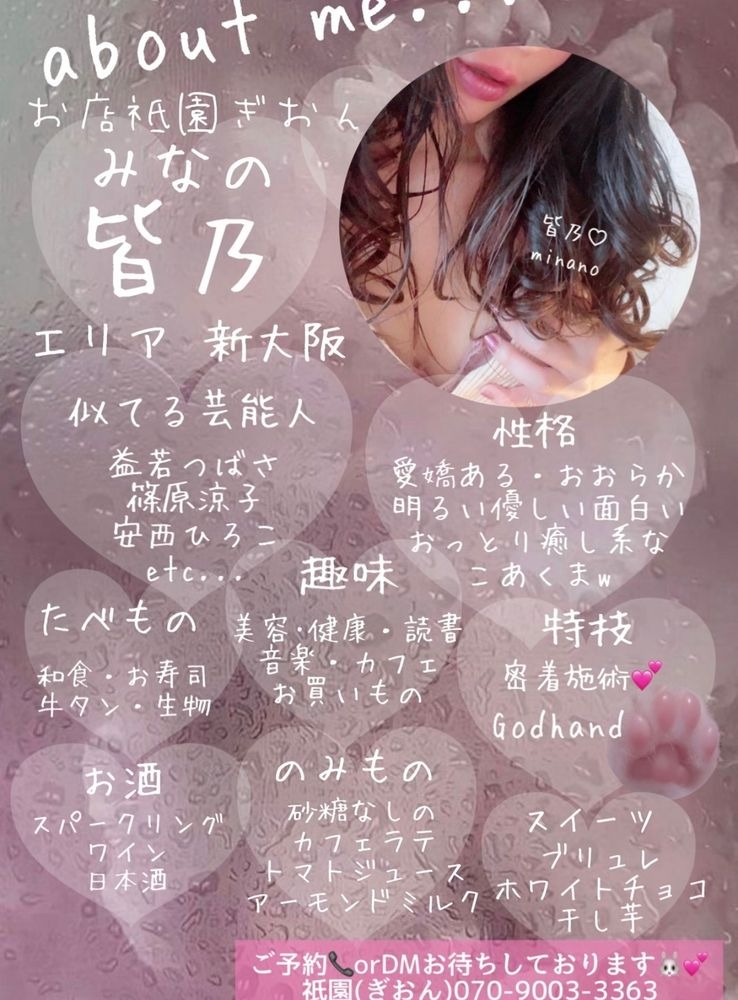 about me...
お店祇園ぎおん
みなの
皆乃
皆乃♡
minano
エリア 新大阪
似てる芸能人
益若つばさ
篠原涼子
安西ひろこ
etc...
性格
愛嬌ある・おおらか
明るい優しい面白い
おっとり癒し系な
こあくまw
たべもの
和食・お寿司
牛タン・生物
趣味
美容・健康・読書
音楽・カフェ
お買いもの
特技
密着施術💕
Godhand
お酒
スパークリング
ワイン
日本酒
のみもの
砂糖なしの
カフェラテ
トマトジュース
アーモンドミルク
スイーツ
ブリュレ
ホワイトチョコ
干し芋
ご予約📞orDMお待ちしております🐰💕
祇園(ぎおん)070-9003-3363